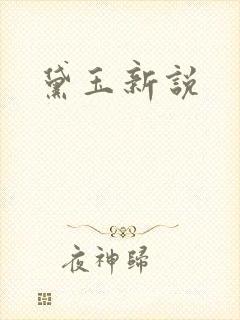 黛玉新說
夜神歸